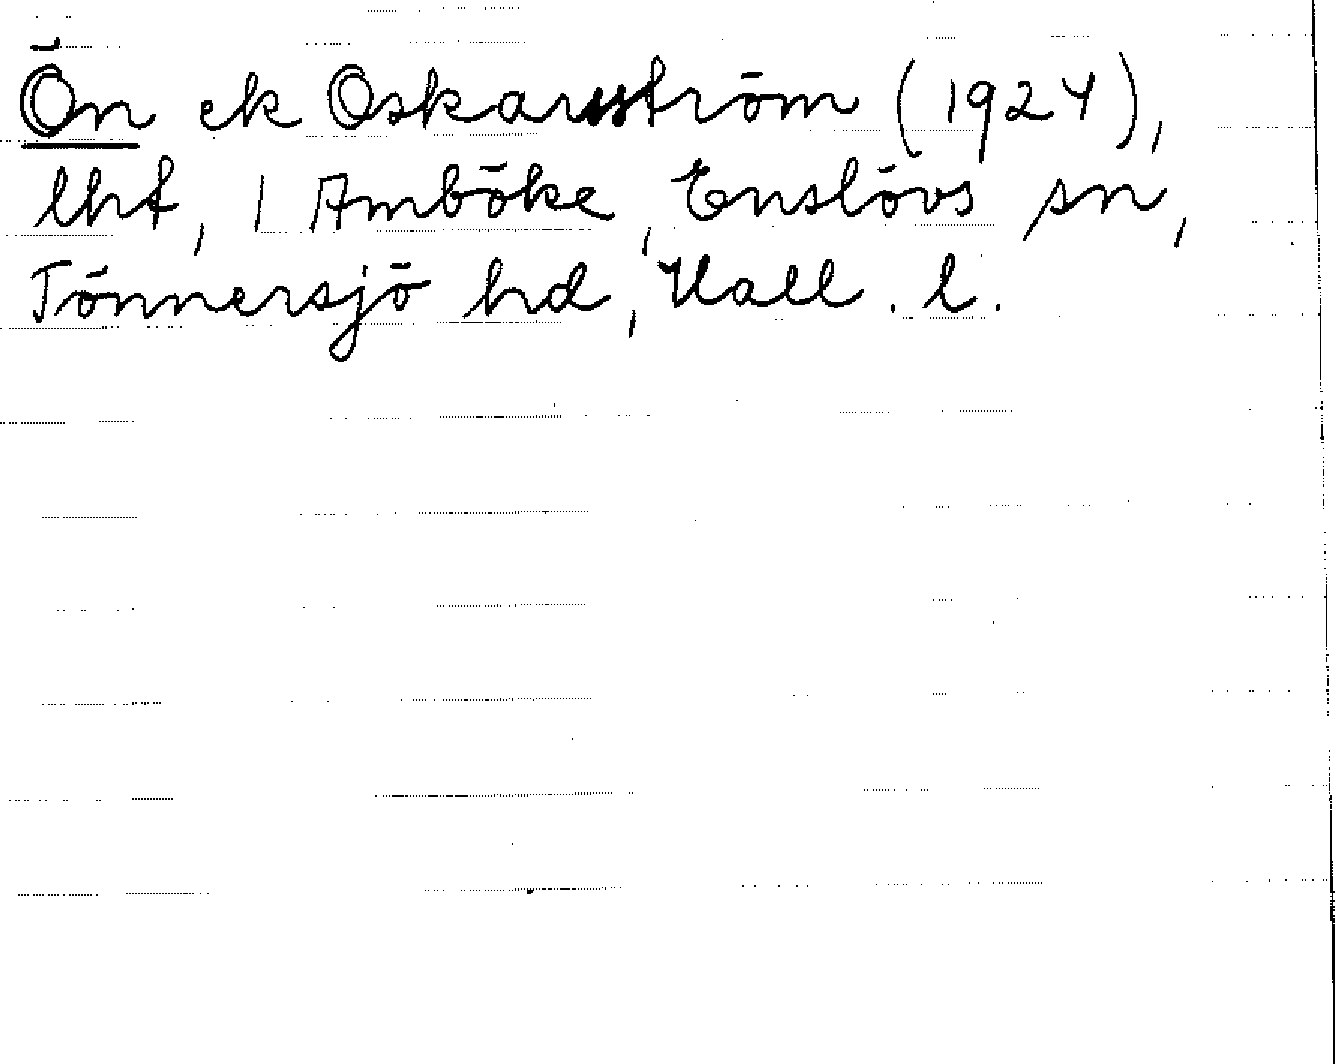 Ön ek Oskarström (1924),
lht, 1 Amböke, Enslövs sn,
Tönnersjö hd, Hall. l.